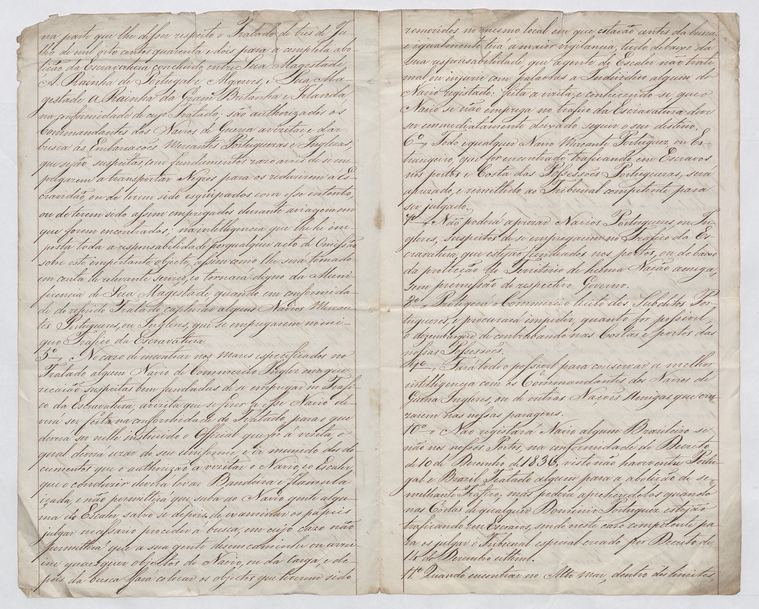 na parte que lhe disser respeito o Tratado de tres de Ju-
lho de mil oito centos quarenta e dois para a completa abo-
lição da Escravatura concluido entre Sua Magestade
A Rainha de Portugal e Algarves, e Sua Ma-
gestade A Rainha da Gram Bretanha e Irlanda
na conformidade de cujo Tratado são authorizados os
Commandantes dos Navios de Guerra a vizitar e dar
busca ás Embarcações Mercantes Portuguezas e Inglezas
que são suspeitas com fundamento razoavel de se em-
pregarem a transportar Negros para os reduzirem a Es-
cravidão, ou de terem sido esquipados com esse intento,
ou de terem sido assim empregados durante a viagem em
que forem encontrados; na intelligencia que lhe im-
porta toda a responsabilidade por qualquer acto de Omissão
sobre este importante objecto, assim como lhe será tomado
em conta serviço, e tornará digno da Muni-
ficencia de Sua Magestade, quando em conformida-
de do referido Tratado captar alguns Navios Mercan-
tes Portuguezes, ou Inglezes, que se empregarem no ini-
quo Trafico da Escravatura.
5º No cazo de encontrar nos Mares especificados no
Tratado algum Navio de Commercio Inglez em que
recaião suspeitas bem fundadas de se empregar no Trafi-
co da Escravatura, a vizita que se fizer a este Navio de-
verá ser feita na conformidade do Tratado, para o que
deverá ser bem instruido o Official que for á vizita, o
qual deverá uzar do seu uniforme, e ir munido dos do-
cumentos que o authorizão a vizitar o Navio, e o Escaler
que o conduzir deverá levar Bandeira e Flammula
içada, e não permittirá que suba ao Navio gente algu-
ma do Escaler salvo se depois de examinar os papeis
julgar necessario proceder á busca, em cujo cazo não
permittirá que a sua gente desencaminhe ou arrui-
ne quaesquer objectos do Navio, ou da Carga, e de-
pois da busca fará collocar os objectos que tiverem sido
removidos no mesmo local em que estavão antes da busca,
e igualmente terá a maior vigilancia, tudo debaixo da
sua responsabilidade que a gente do Escaler não trate
mal ou injurie com palavras a Individuo algum do
Navio registado: feita a vizita, e conhecendo se que o
Navio se não emprega no trafico da Escravatura deve
ser immediatamente deixado seguir o seu destino.
6º Todo e qualquer Navio Mercante Portuguez, ou Es-
trangeiro que for encontrado traficando em Escravos
nos portos e Costa das Possessões Portuguezas, será
aprezado, e remettido ao Tribunal competente para
ser julgado.
7º Não poderá aprezar Navios Portuguezes ou In-
glezes, suspeitos de se empregarem no Trafico da Es-
cravatura, que estejão fundeados nos portos, ou debaixo
da protecção do Territorio de alguma Nação amiga,
sem permissão do respectivo Governo.
8º Protegerá o Commercio licito dos Subditos Por-
tuguezes, e procurará impedir, quanto for possivel,
o desembarque de contrabando nas Costas e portos das
nossas Possessões.
9º Fará todo o possivel para conservar a melhor
intelligencia com os Commandantes dos Navios de
Guerra Inglezes, ou de outras Nações Amigas que cru-
zarem nas nossas paragens.
10º Não registará Navio algum Brazileiro se-
não nos nossos Portos, na conformidade do Decreto
de 10 de Dezembro de 1836, visto não haver entre Portu-
gal e Brazil Tratado algum para a abolição de se-
melhante Trafico; mas poderá aprehendelos quando
nas Costas de qualquer Dominio Portuguez estejão
traficando em Escravos, sendo neste cazo competente pa-
ra os julgar o Tribunal especial creado por Decreto de
14 de Dezembro ultimo.
11º Quando encontrar no Alto mar, dentro dos limites